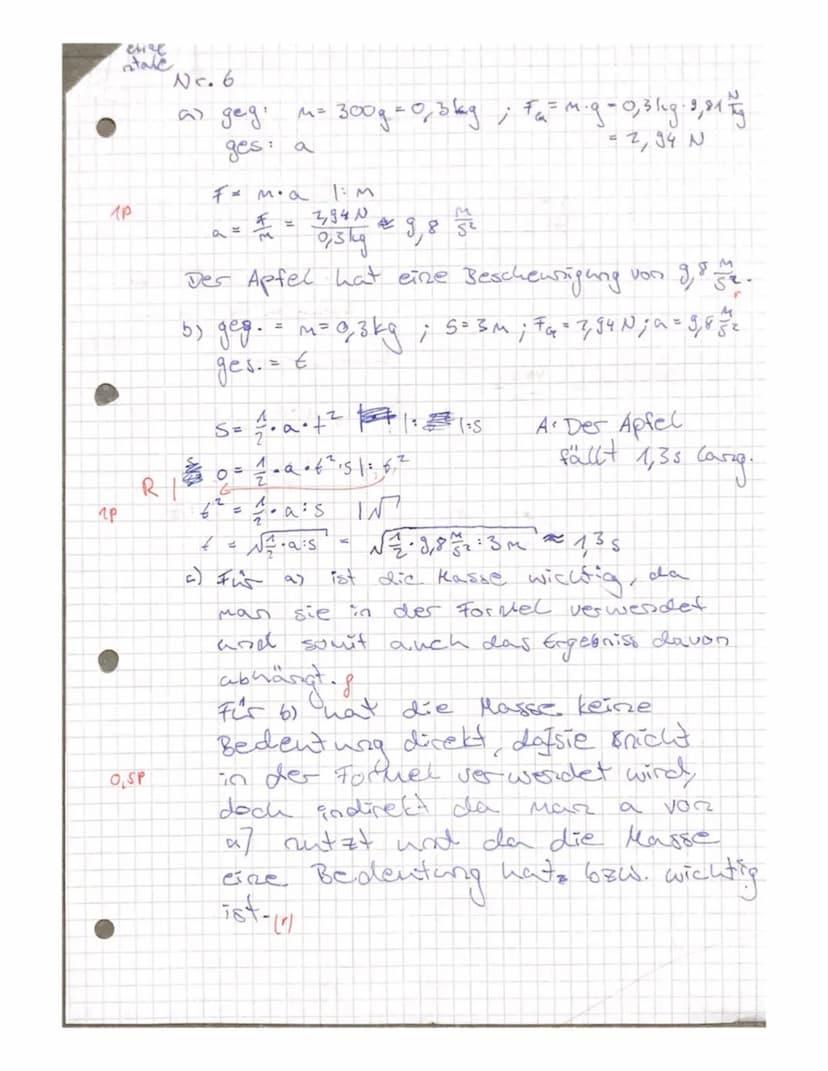 eine
Nr. 6
a) geg: m = 300g = 0,3kg ; F_G = m·g = 0,3kg·9,81 N/kg
ges: a = 2,94 N
F = m·a |:m
1P
a = F/m = 2,94N/0,3kg ≈ 9,8 m/s²
Der Apfel hat eine Bescheunigung von 9,8 m/s².
r
b) geg. = m = 0,3kg ; s = 3m ; F_G = 2,94N ; a = 9,8 m/s²
ges. = t
s = 1/2·a·t² |: |:s A: Der Apfel
0 = 1/2·a·t²·s |:t² fällt 1,3s lang.
R |
t² = 1/2·a:s |√
1P
t = √(1/2·a:s) = √(1/2·9,8 m/s² : 3m) ≈ 1,3s
c) Für a) ist die Masse wichtig, da
man sie in der Formel verwendet
und somit auch das Ergebniss davon
abhängt. f
Für b) hat die Masse keine
Bedeutung direkt, da sie nicht
0,5P in der Formel verwendet wird,
doch indirekt da man a von
a) nutzt und da die Masse
eine Bedeutung hat bzw. wichtig
ist. (r)